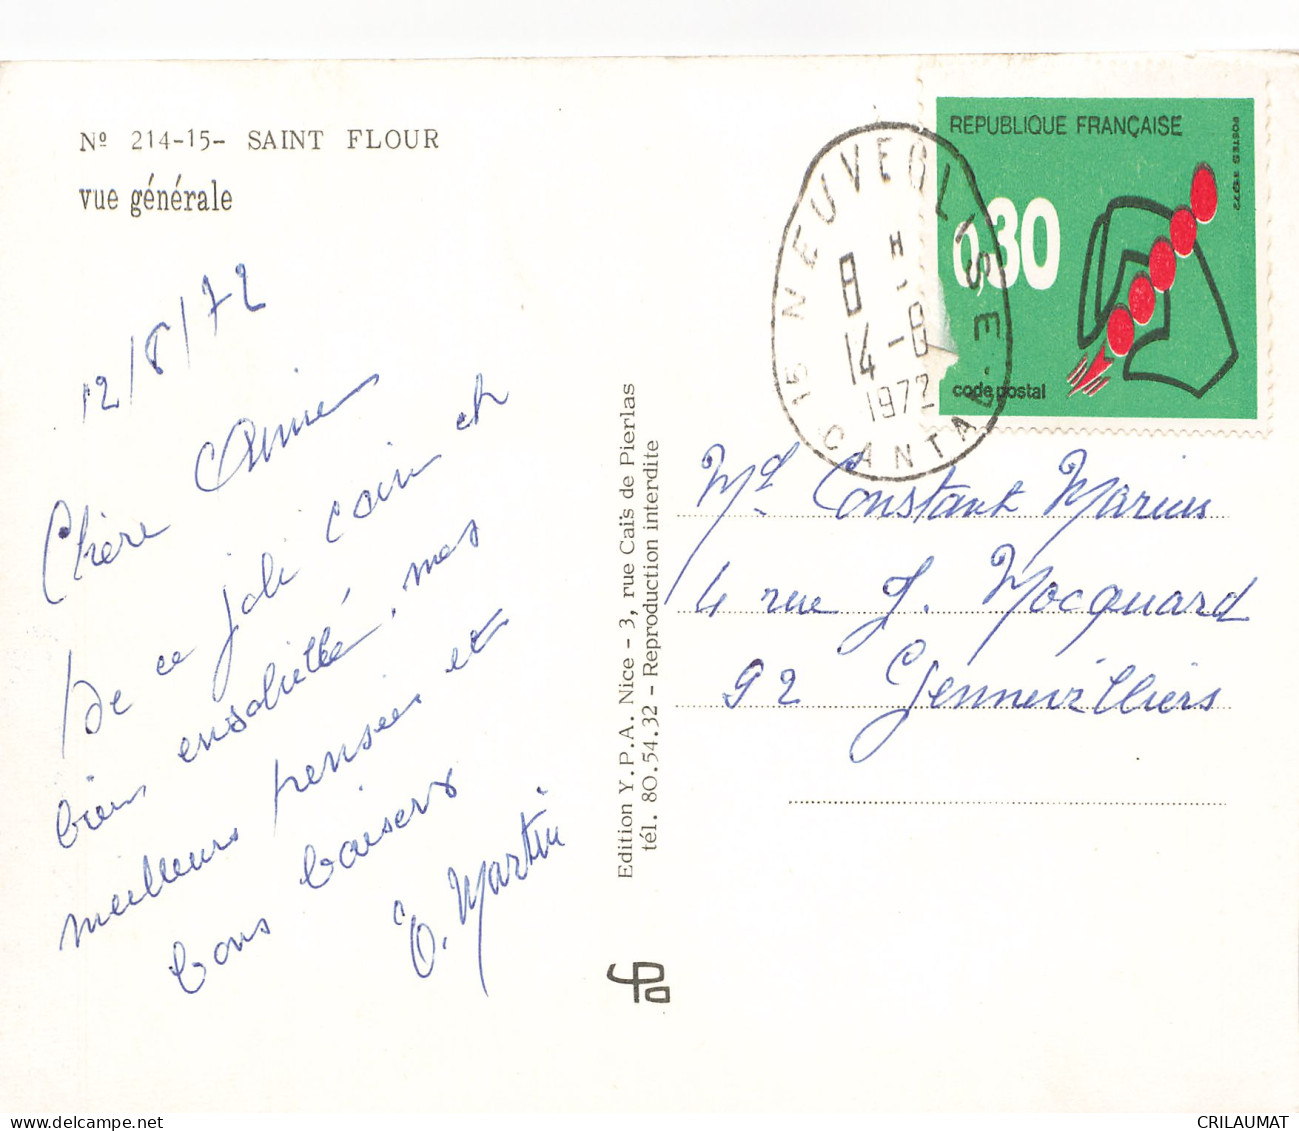 Nº 214-15- SAINT FLOUR
vue générale
12/8/72
Chère
De ce joli coin et
bien ensoleillé, mes
meilleurs pensées et
bons baisers
O. Martin
Edition Y.P.A. Nice - 3, rue Caïs de Pierlas
tél. 80.54.32 - Reproduction interdite
REPUBLIQUE FRANÇAISE
POSTES 1972
0,30
code postal
15 NEUVEGLISE
8 H
14-8
1972
CANTAL
Md Constant Marius
4 rue J. Mocquard
92 Gennevilliers
CRILAUMAT